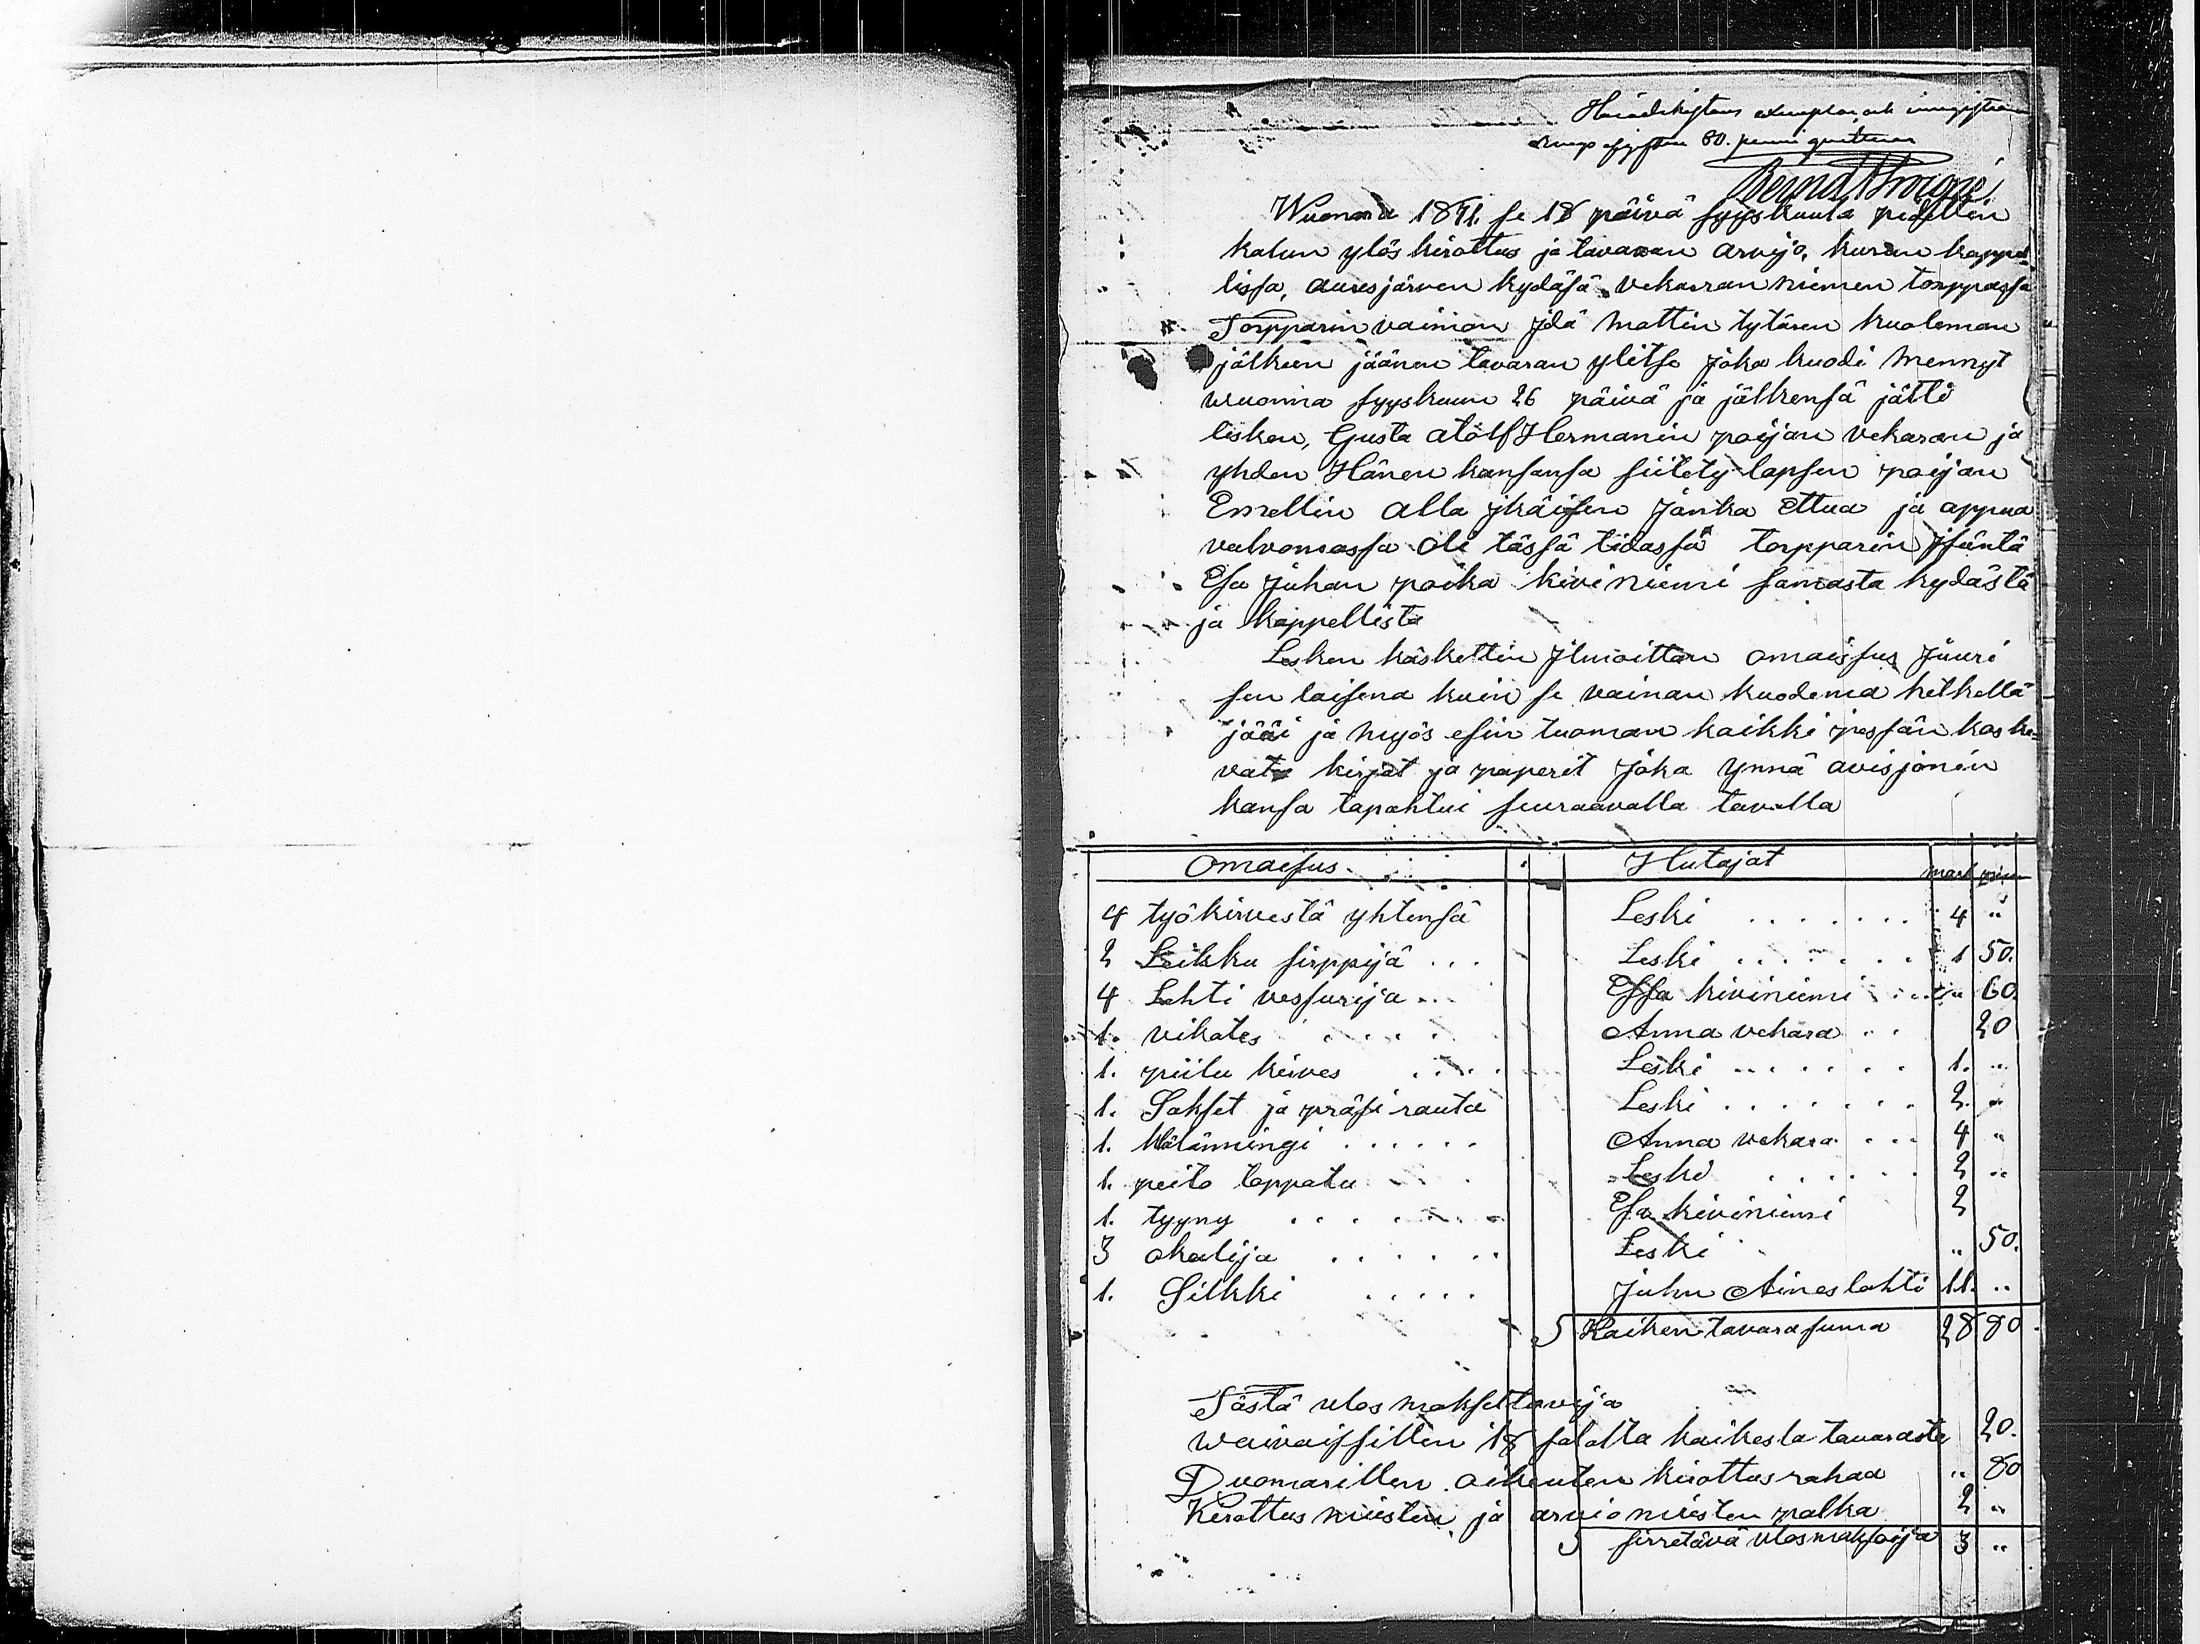 80. penni
Wuonna 1891 se 18 päivä syyskuuta pidettin
kalun ylös kirottus ja tavaran arvijo, kurun kappe-
lissa, auresjärven kydäsä vekarran niemen torppassa
Torpparin vaimon Jdä mattin tytären kuoleman
jälkeen jäänen tavaran ylitse joka kuoli mennyt
wuonna syyskuun 26 päivä ja jälkensä jätti
lesken, Gusta atolf Hermanin poijan vekaran ja
yhden Hänen kansansa siitety lapsen poijan
Emellin alla jkäisen Jonka Ettua ja appua
valvomassa oli tässä tidassa torpparin Jsäntä
Esa Juhan poika kiviniemi samasta kydästä
ja kappellista
Lesken käskettin Jlmoittan omaissus Juuri
sen laisena kuin se vainan kuolema hetkellä
jääi ja myös esin tuoman kaikki pessän koske-
vat kirjat ja paperit Joka ynnä avisjonin
kansa tapahtui seuraavalla tavalla
Omaisus Hutajat mark pen
4 työkirvestä yhtensä Leski . . . . . . . 4 "
2 Leikku sirppijä . . . Leski . . . . . . . 1 50.
4 Lehti vessurija . . . Essa kiviniemi . . . " 60.
1. vikates . . . . . Anna vekara . . 20
1. piilu kirves . . . . Leski . . . . . . 1. "
1. Sakset ja präsi rauta Leski . . . . . . . 2. "
1. Wälänningi . . . . . . Anna vekara . . . 4 "
1. peito toppatu . . . Leski . . . . . 2 "
1. tyyny . . . . . . . Esa kiviniemi 2
3 okalija . . . . . . Leski " 50.
1. Silkki . . . . . Juhu Aineslahti 11. "
S Kaiken tavara suma 28 80
Tästä ulos maksettavija
waivaissillen 1/8 salatta kaikesta tavarasta 20.
Duomarillen oikeuten kirottus rahaa " 80
Kirottus miisten ja arvio miesten palka 2 "
S sirretävä ulosmaksoija 3 "